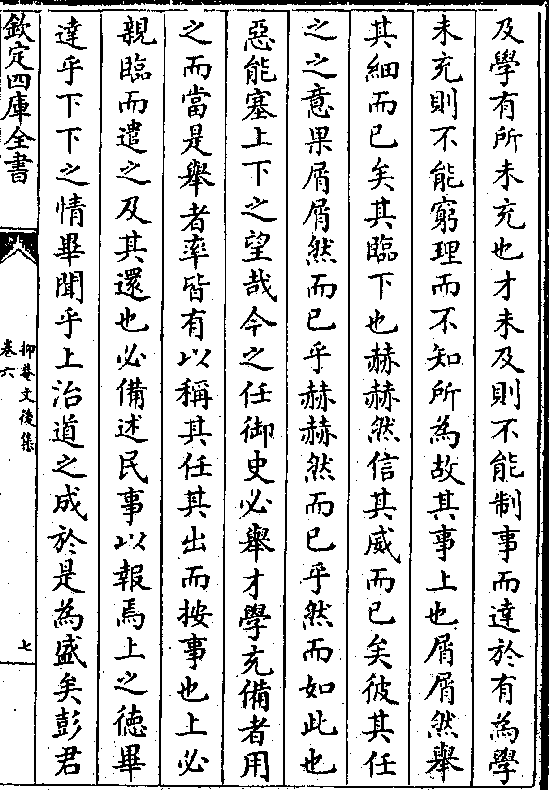 及學有所未充也才未及則不能制事而達於有為學
未充則不能窮理而不知所為故其事上也屑屑然舉
其細而已矣其臨下也赫赫然信其威而已矣彼其任
之之意果屑屑然而已乎赫赫然而已乎然而如此也
惡能塞上下之望哉今之任御史必舉才學充備者用
之而當是舉者率皆有以稱其任其出而按事也上必
親臨而遣之及其還也必備述民事以報焉上之徳畢
達乎下下之情畢聞乎上治道之成於是為盛矣彭君
欽定四庫全書
抑菴文後集
卷六
七